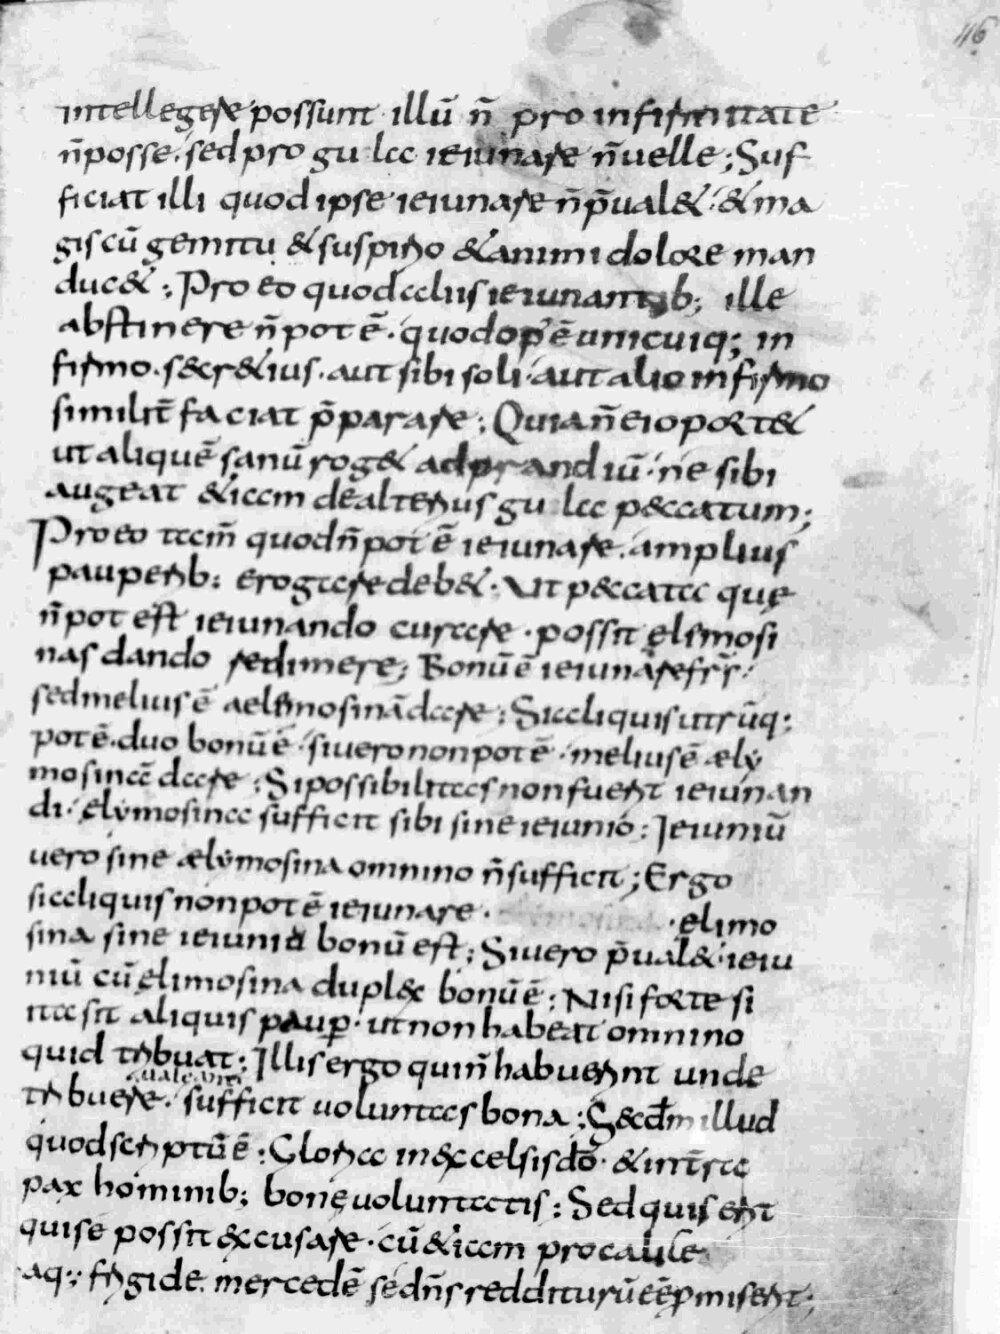 116
intellegere possunt illū n̄ pro infirmitate
n̄ posse. sed pro gula ieiunare n̄ uelle; Suf
ficiat illi quod ipse ieiunare n̄ p̄ual&. & ma
gis cū gemitu & suspirio & animi dolore man
duc&; Pro eo quod aliis ieiunantib; ille
abstinere n̄ pot ē. quod op̄ ē unicuiq; in
firmo. secr&ius. aut sibi soli. aut alio infirmo
similit̄ faciat p̄parare; Quia n̄ ei oport&
ut aliquē sanū rog& ad prandiū. ne sibi
augeat &iam de alterius gula peccatum;
Pro eo tam̄ quod n̄ pot ē ieiunare. amplius
pauperib; erogare deb&. Ut peccata quę
n̄ pot est ieiunando curare. possit elymosi
nas dando redimere; Bonū ē ieiunare fr̄s.
sed melius ē aelymosinā dare; Si aliquis utrūq;
pot ē. duo bonū ē. si uero non pot ē. melius ē æly
mosinā dare; Si possibilitas non fuerit ieiunan
di. elymosina sufficit sibi sine ieiunio; Ieiuniū
uero sine ælymosina omnino n̄ sufficit; Ergo
si aliquis non pot ē ieiunare. . elimo
sina sine ieiunio bonū est; Si uero p̄ual&. ieiu
niū cū elimosina dupl&x bonū ē; Nisi forte si
ita sit aliquis paup̄. ut non habeat omnino
quid tribuat; Illis ergo qui n̄ habuerint unde
tribuere. sufficit uoluntas bona; S&cd̄m illud
quod scriptū ē; Gloria in excelsis dō. & in t̄ra
pax hominib; bonę uoluntatis; Sed quis erit
qui se possit excusare. cū &iam pro calice
aq; frigide. mercedē se dn̄s redditurū eē p̄miserit;